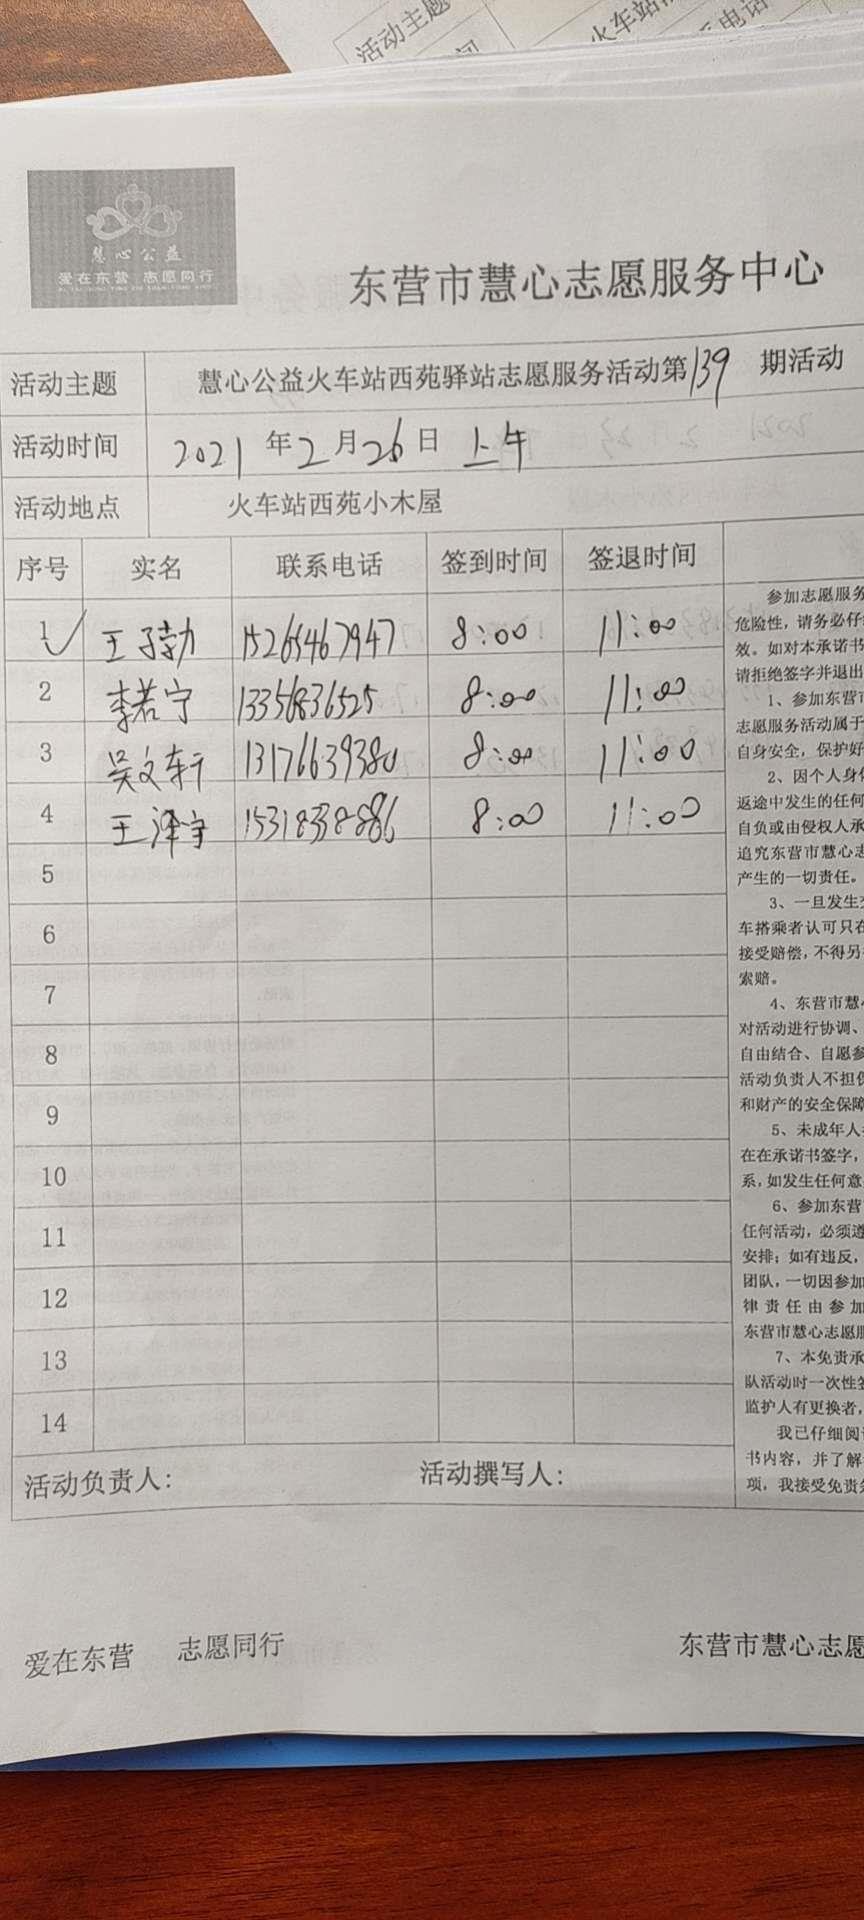 活动主题
火车站
电话
慧心公益
爱在东营 志愿同行
东营市慧心志愿服务中心
活动主题 慧心公益火车站西苑驿站志愿服务活动第139期活动
活动时间 2021年2月26日 上午
活动地点 火车站西苑小木屋
序号 实名 联系电话 签到时间 签退时间
1 王子勃 15265467947 8:00 11:00
2 李若宁 13356836525 8:00 11:00
3 吴文轩 13176639380 8:00 11:00
4 王泽宇 15318338886 8:00 11:00
5
6
7
8
9
10
11
12
13
14
活动负责人: 活动撰写人:
参加志愿服务
危险性,请务必仔
效。如对本承诺书
请拒绝签字并退出
1、参加东营市
志愿服务活动属于
自身安全,保护好
2、因个人身体
返途中发生的任何
自负或由侵权人承
追究东营市慧心志
产生的一切责任。
3、一旦发生交
车搭乘者认可只在
接受赔偿,不得另
索赔。
4、东营市慧心
对活动进行协调、
自由结合、自愿参
活动负责人不担保
和财产的安全保障
5、未成年人
在在承诺书签字,
系,如发生任何意
6、参加东营
任何活动,必须遵
安排;如有违反,
团队,一切因参加
律责任由参加
东营市慧心志愿服
7、本免责承
队活动时一次性签
监护人有更换者,
我已仔细阅读
书内容,并了解
项,我接受免责
爱在东营 志愿同行
东营市慧心志愿